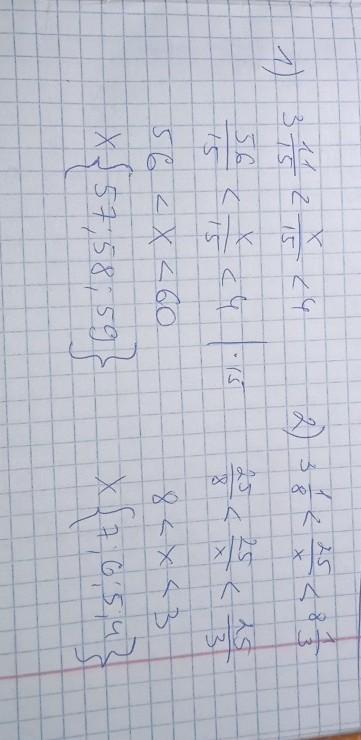 1) 3 11/15 < x/15 < 4
56/15 < x/15 < 4 | ·15
56 < x < 60
x {57; 58; 59}
2) 3 1/8 < 25/x < 8 1/3
25/8 < 25/x < 25/3
8 < x < 3
x {7; 6; 5; 4}